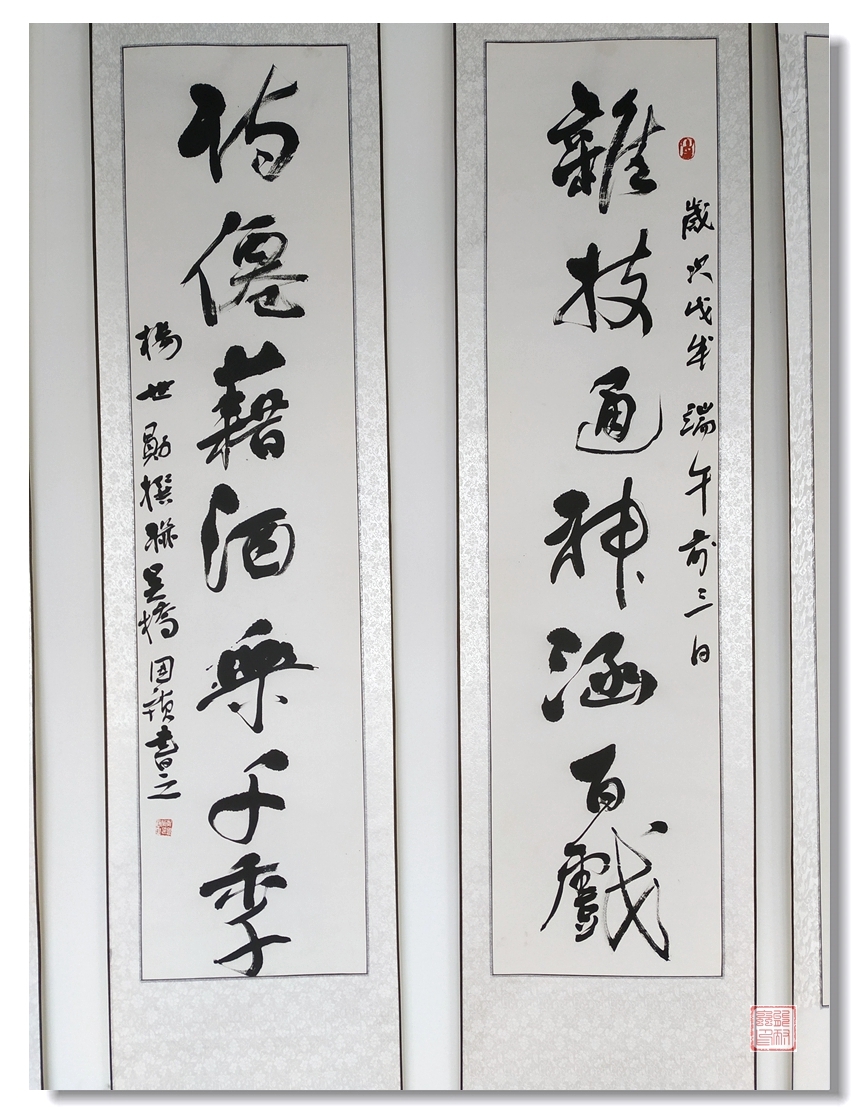 歲次戊戌端午前三日
雜技通神涵百戲
詩僊藉酒樂千秊
楊世勛撰聯吳橋國書之